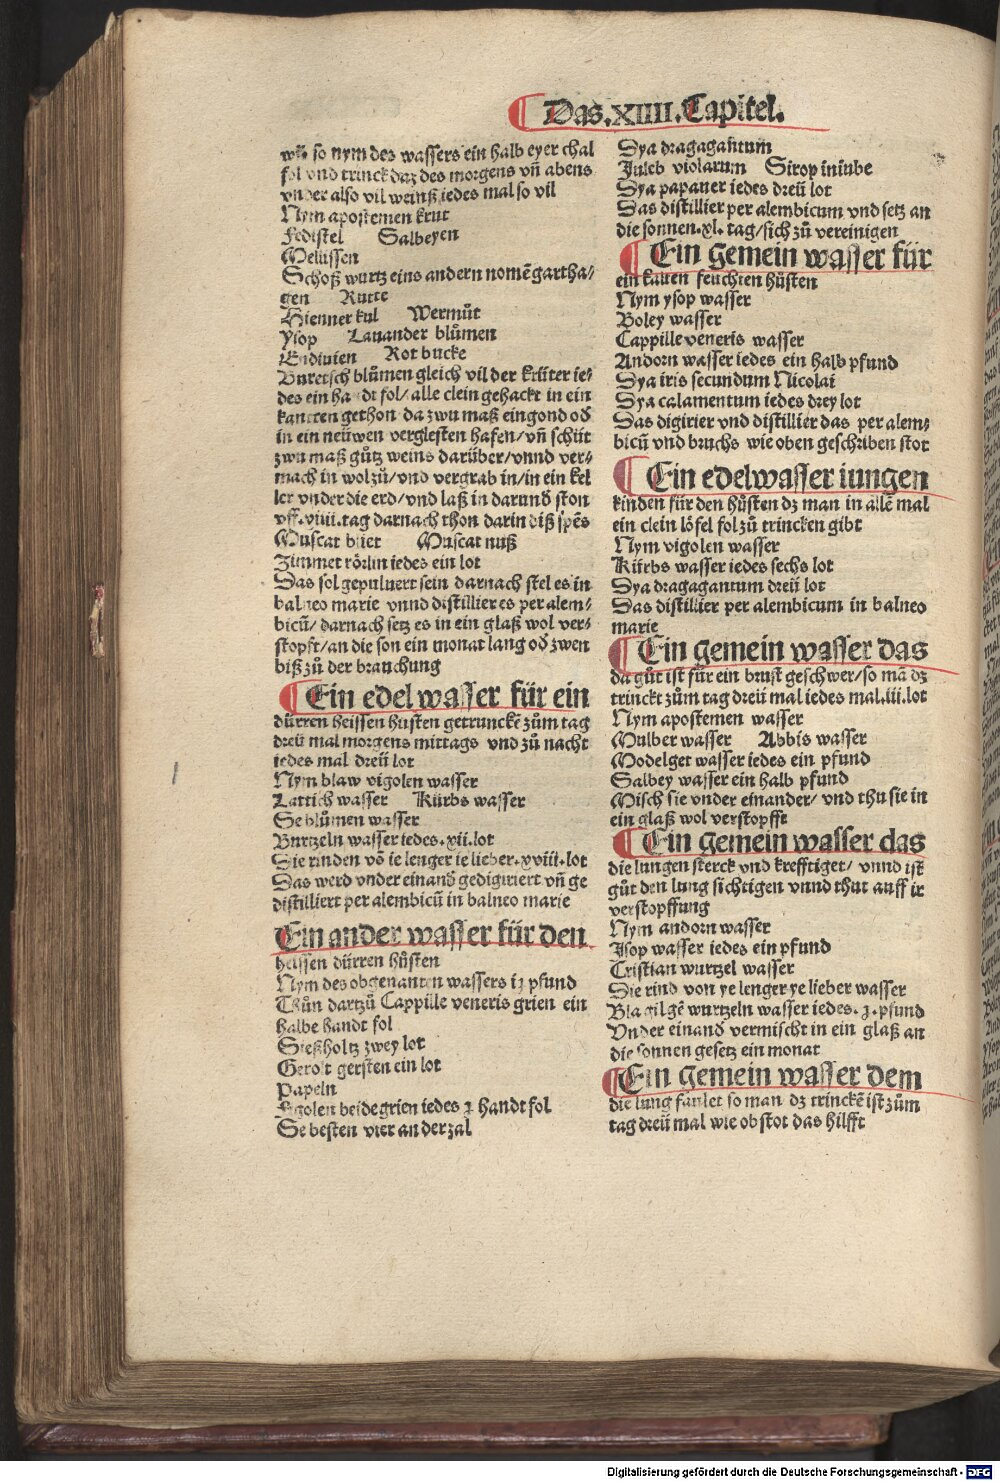 Das.XIIII.Capitel.
so nym des wassers ein halb eyer chal
fol vnd trinck daz des morgens vñ abens
vnder also vil weinß iedes mal so vil
Nym apostemen krut
Salbeyen
Melissen
Schoß wurtz eins andern nomē gartha/
gen Rutte
Hienner kul Wermůt
ysop Lauander blůmen
Endiuien Rot bucke
Buretsch blůmen gleich vil der krüter ie⸗
des ein fol/alle clein gehackt in ein
kannten gethon da zwu maß eingond oď
in ein neüwen verglesten hafen/vñ schüt
zwu maß gůtz weins darüber/vnnd ver⸗
mach in wol zů/vnd vergrab in/in ein kel
ler vnder die erd/vnd laß in darunď ston
vff.viiii.tag darnach thon darin diß spēs
Muscat blüet Muscat nuß
Zimmet rörlin iedes ein lot
Das sol gepuluert sein darnach stel es in
balneo marie vnnd distillier es per alem⸗
bicū/darnach setz es in ein glaß wol ver⸗
stopft/an die son ein monat lang oď zwen
biß zů der brauchung
Ein edel wasser für ein
dürren heissen hůsten getrunckē zům tag
dreü mal morgens mittags vnd zů nacht
iedes mal dreü lot
Nym blaw vigolen wasser
Lattich wasser Kürbs wasser
Se blůmen wasser
Burtzeln wasser iedes.xii.lot
Die rinden vō ie lenger ie lieber.xviii.lot
Das werd vnder einanď gedigiriert vñ ge
distilliert per alembicū in balneo marie
Ein ander wasser für den
heissen dürren hůsten
Nym des obgenanten wassers iȷ pfund
Thůn dartzů Cappille veneris grien ein
halbe handt fol
Sießholtz zwey lot
Gerolt gersten ein lot
Papeln
beide grien iedes ȷ handt fol
Se besten vier an der zal
Dya dragagantum
Juleb violarum Sirop iniube
Dya papauer iedes dreü lot
Das distillier per alembicum vnd setz an
die sonnen.xl.tag/sich zů vereinigen
Ein gemein wasser für
ein kalten feuchten hůsten
Nym ysop wasser
Boley wasser
Cappille veneris wasser
Andorn wasser iedes ein halb pfund
Dya iris secundum Nicolai
Dya calamentum iedes drey lot
Das digirier vnd distillier das per alem⸗
bicū vnd bruchs wie oben geschriben stot
Ein edel wasser iungen
kinden für den hůsten dz man in allē mal
ein clein löfel fol zů trincken gibt
Nym vigolen wasser
Kürbs wasser iedes sechs lot
Dya dragagantum dreü lot
Das distillier per alembicum in balneo
marie
Ein gemein wasser das
da gůt ist für ein brust geschwer/so mā dz
trinckt zům tag dreü mal iedes mal.iii.lot
Nym apostemen wasser
Mulber wasser Abbis wasser
Modelget wasser iedes ein pfund
Salbey wasser ein halb pfund
Misch sie vnder einander/vnd thu sie in
ein glaß wol verstopfft
Ein gemein wasser das
die lungen sterck vnd krefftiget/vnnd ist
gůt den lung sichtigen vnnd thut auff ir
verstopffung
Nym andorn wasser
Isop wasser iedes ein pfund
Cristian wurtzel wasser
Die rind von ye lenger ye lieber wasser
Bla gilgē wurtzeln wasser iedes.ȷ.pfund
Vnder einanď vermischt in ein glaß an
die sonnen gesetz ein monat
Ein gemein wasser dem
die lung faulet so man dz trinckē ist zům
tag dreü mal wie obstot das hilfft
Digitalisierung gefördert durch die Deutsche Forschungsgemeinschaft - DFG